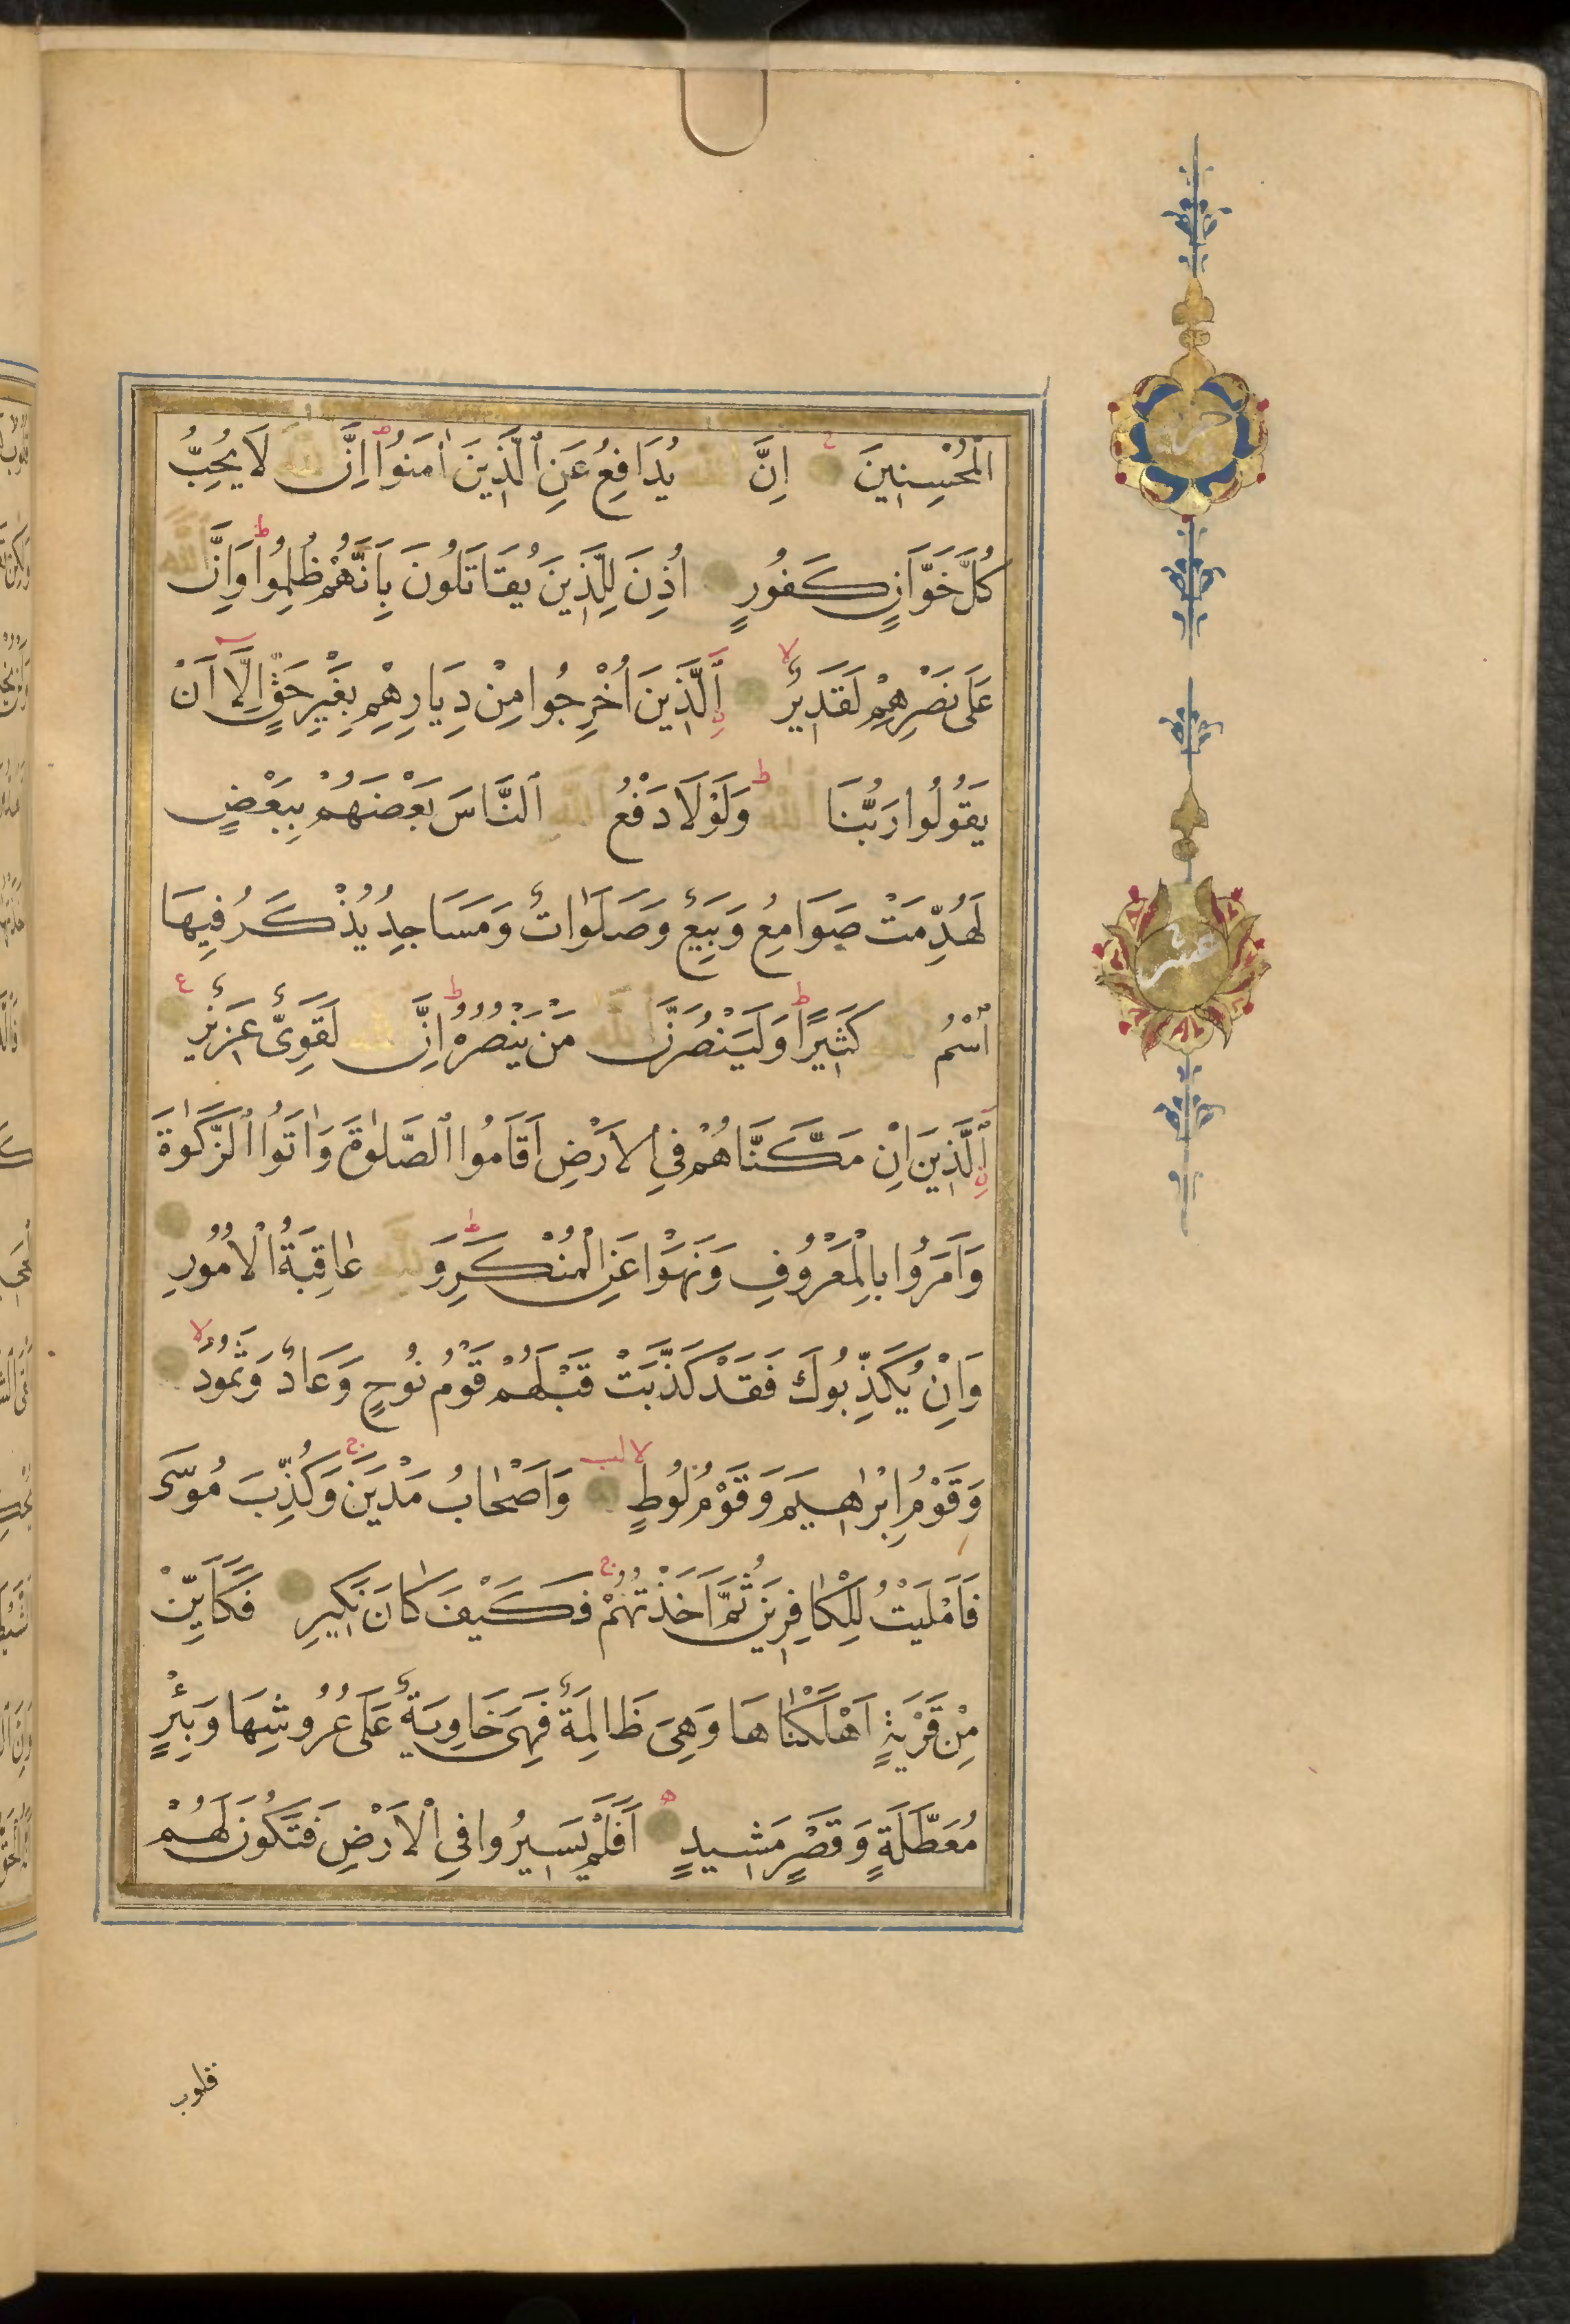 الْمُحْسِنِينَ اِنَّ اللّٰهَ يُدَافِعُ عَنِ ٱلَّذِينَ اٰمَنُوا اِنَّ اللّٰهَ لَا يُحِبُّ
كُلَّ خَوَّانٍ كَفُورٍ اُذِنَ لِلَّذِينَ يُقَاتَلُونَ بِاَنَّهُمْ ظُلِمُوا وَاِنَّ اللّٰهَ
عَلَى نَصْرِهِمْ لَقَدِيرٌ اِلَّذِينَ اُخْرِجُوا مِنْ دِيَارِهِمْ بِغَيْرِ حَقٍّ اِلَّا اَنْ
يَقُولُوا رَبُّنَا اللّٰهُ وَلَوْلَا دَفْعُ اللّٰهِ ٱلنَّاسَ بَعْضَهُمْ بِبَعْضٍ
لَهُدِّمَتْ صَوَامِعُ وَبِيَعٌ وَصَلَوَاتٌ وَمَسَاجِدُ يُذْكَرُ فِيهَا
ٱسْمُ اللّٰهِ كَثِيرًا وَلَيَنْصُرَنَّ اللّٰهُ مَنْ يَنْصُرُهُ اِنَّ اللّٰهَ لَقَوِىٌّ عَزِيزٌ
اِلَّذِينَ اِنْ مَكَّنَّاهُمْ فِي الْاَرْضِ اَقَامُوا ٱلصَّلٰوةَ وَاٰتَوُا ٱلزَّكٰوةَ
وَاَمَرُوا بِالْمَعْرُوفِ وَنَهَوْا عَنِ الْمُنْكَرِ وَلِلّٰهِ عَاقِبَةُ الْاُمُورِ
وَاِنْ يُكَذِّبُوكَ فَقَدْ كَذَّبَتْ قَبْلَهُمْ قَوْمُ نُوحٍ وَعَادٌ وَثَمُودُ
وَقَوْمُ اِبْرٰهِيمَ وَقَوْمُ لُوطٍ وَاَصْحَابُ مَدْيَنَ وَكُذِّبَ مُوسَى
فَاَمْلَيْتُ لِلْكَافِرِينَ ثُمَّ اَخَذْتُهُمْ فَكَيْفَ كَانَ نَكِيرِ فَكَاَيِّنْ
مِنْ قَرْيَةٍ اَهْلَكْنَاهَا وَهِىَ ظَالِمَةٌ فَهِىَ خَاوِيَةٌ عَلَى عُرُوشِهَا وَبِئْرٍ
مُعَطَّلَةٍ وَقَصْرٍ مَشِيدٍ اَفَلَمْ يَسِيرُوا فِي الْاَرْضِ فَتَكُونَ لَهُمْ
قلوب
عشر